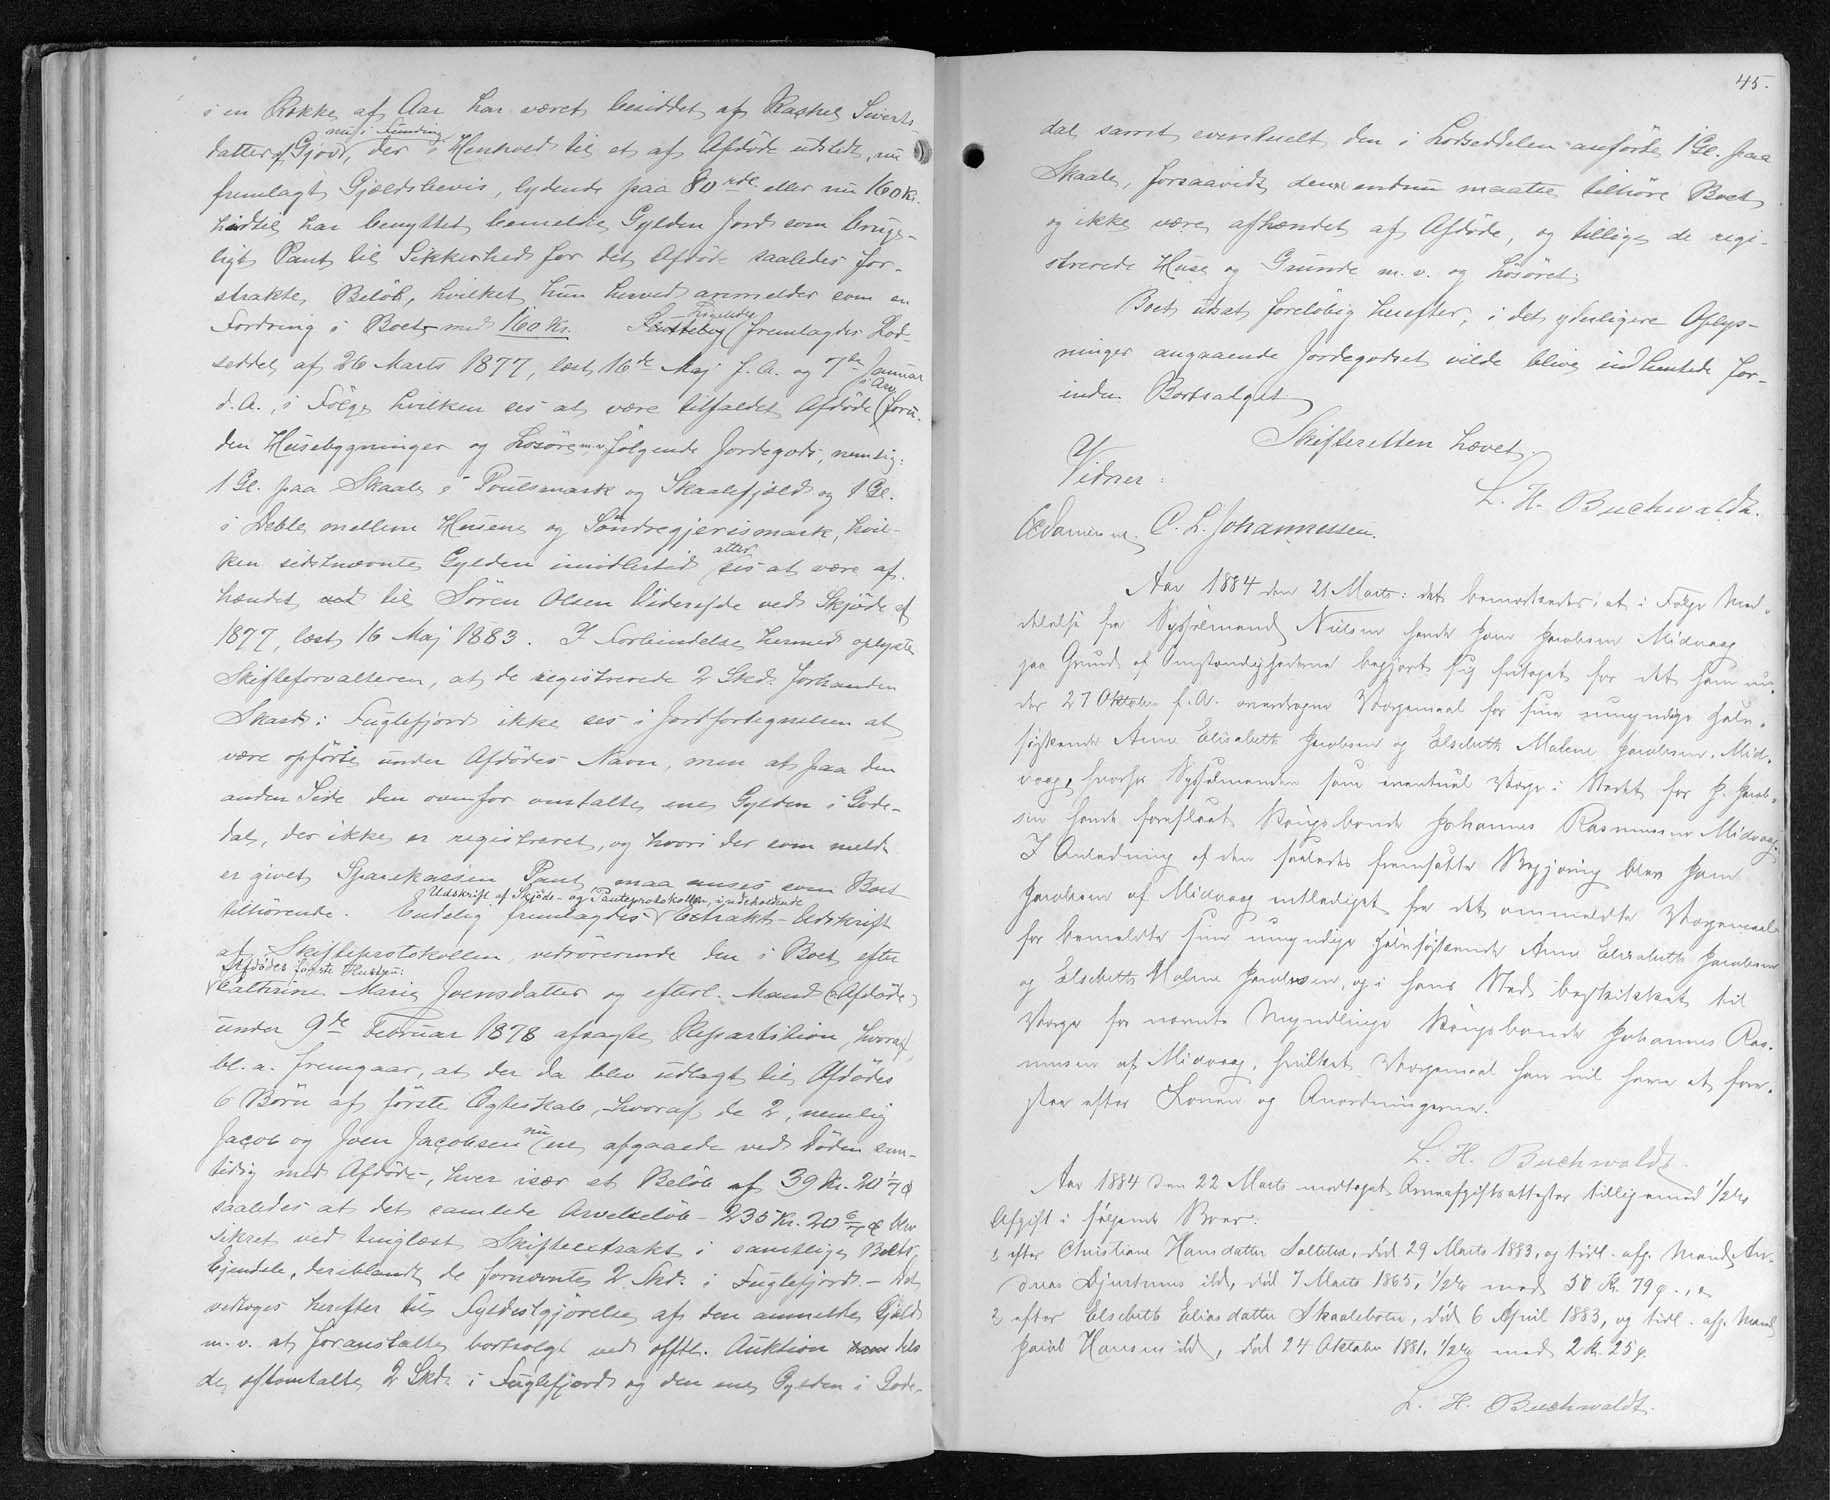 i en Række af Aar har været besiddet af Rasmus Siverts-
nu i Funding
datter af Gjov, der i Henhold til et af Afdøde udstedt, nu
fremlagt Gjældsbevis, lydende paa 80 rdl. eller nu 160 Kr.
hidtil har benyttet bemeldte Gylden Jord som bruge-
ligt Pant til Sikkerhed for det Afdøde saaledes for-
strakte Beløb, hvilket hun herved anmelder som en
Ligeledes
Fordring i Boet med 160 Kr. fremlagdes Lod-
seddel af 26 Marts 1877, læst 16de Maj f. A. og 7de Januar
i Arv
d. A., i Følge hvilken ses at være tilfaldet Afdøde foru-
den Husebygninger og Løsøre m.v. følgende Jordegods, nemlig:
1 Gl. paa Skaale i Poulsmark og Skaalefjæld og 1 Gl.
i Deble mellem Husene og Søndregjerismark, hvil-
atter
ken sidstnævnte Gylden imidlertid ses at være af-
hændet ved til Søren Olsen Viderejde ved Skjøde af
1877, læst 16 Maj 1883. I Forbindelse hermed oplyste
Skifteforvalteren, at de registrerede 2 Skd. Jord
i Fuglefjord ikke ses i Jordfortegnelsen at
være opførte under Afdødes Navn, men at paa den
anden Side den ovenfor omtalte ene Gylden i Gode-
dal, der ikke er registreret, og hvori der som meldt
er givet Sparekassen Pant, maa anses som Boet
Udskrift af Skjøde- og Panteprotokollen, indeholdende
tilhørende. Endelig fremlagdes Extrakt-Udskrift
af Skifteprotokollen, vedrørerende den i Boet efter
Afdødes første Hustru:
Cathrine Marie Joensdatter og efterl. Mand (Afdøde)
under 9de Februar 1878 afsagte Repartition, hvoraf
bl. a. fremgaar, at der da blev udlagt til Afdødes
6 Børn af første Ægteskab, hvoraf de 2, nemlig
nu
Jacob og Joen Jacobsen ere afgaaede ved Døden sam-
tidig med Afdøde, hver især et Beløb af 39 Kr. 20 1/7 Ø
saaledes at det samlede Arvebeløb - 235 Kr. 20 6/7 Ø blev
sikret ved tinglæst Skifteextrakt i samtlige Boets
Ejendele, deriblandt de fornævnte 2 Skd. i Fuglefjord. - Det
vedtoges herefter til Fyldestgjørelse af den anmeldte Gjæld
m. v. at foranstalte bortsolgt ved offtl. Auktion dels
de oftomtalte 2 Skd. i Fuglefjord og den ene Gylden i Gode-
45.
dal samt eventuelt den i Lodseddelen anførte 1 Gl. paa
Skaale, forsaavidt denne endnu maatte tilhøre Boet
og ikke være afhændet af Afdøde, og tillige de regi-
strerede Huse og Grunde m. v. og Løsøret.
Boet udsat foreløbig herefter, i det yderligere Oplys-
ninger angaaende Jordegodset vilde blive indhentede for-
inden Bortsalget.
Skifteretten hævet.
L. H. Buchwaldt.
Vidner:
C. L. Johannessen.
Aar 1884 den 21 Marts: det bemærkedes, at i Følge Med-
delelse fra Sysselmand Nielsen havde Joen Jacobsen Midvaag
paa Grund af Omstændighederne begjært sig fritaget for det ham un-
der 27 Oktober f. A. overdragne Værgemaal for sine umyndige Halv-
søskende Anne Elisabeth Jacobsen og Elsebeth Malene Jacobsen, Mid-
vaag, hvorfor Sysselmanden som eventuel Værge i Stedet for J. Jacob-
sen havde foreslaaet Kongsbonde Johannes Rasmussen Midvaag.
I Anledning af den saaledes fremsatte Begjæring blev Joen
Jacobsen af Midvaag entlediget fra det ommeldte Værgemaal
for bemeldte sine umyndige Halvsøskende Anne Elisabeth Jacobsen
og Elsebeth Malene Jacobsen, og i hans Sted beskikket til
Værge for nævnte Myndlinge Kongsbonde Johannes Ras-
mussen af Midvaag, hvilket Værgemaal han vil have at fore-
staa efter Loven og Anordningerne.
L. H. Buchwaldt.
Aar 1884 den 22 Marts modtaget Arveafgiftsattester tilligemed 1/2 %
Afgift i følgende Boer:
1 efter Christiane Hansdatter, død 29 Marts 1883, og tidl. afg. Mand An-
dreas, død 7 Marts 1865, 1/2 % med 50 Kr. 79 Ø.
2 efter Elsebeth Eliasdatter Skaalebotn, død 6 April 1883, og tidl. afg. Mand
Jacob Hansen ibd, død 24 Oktober 1881, 1/2 % med 2 Kr. 25 Ø.
L. H. Buchwaldt.